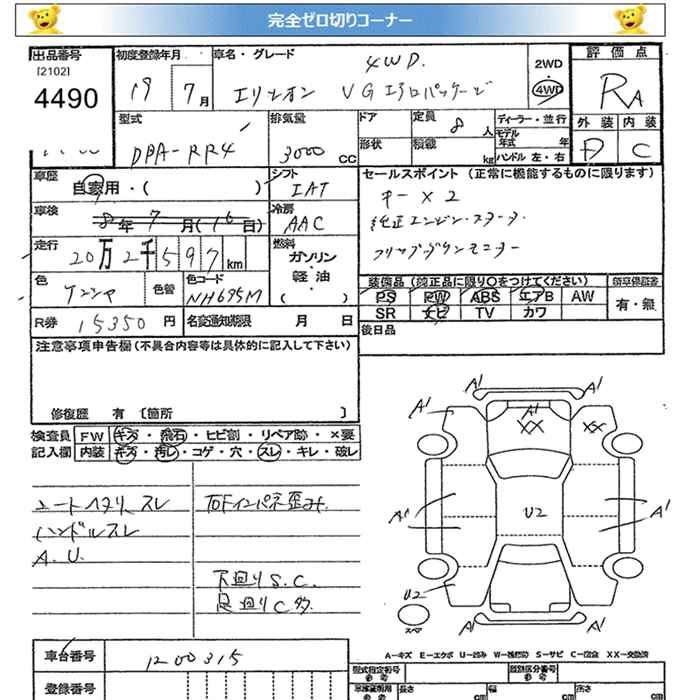 完全ゼロ切りコーナー
出品番号 初度登録年月 車名・グレード 4WD. 2WD 評価点
[2102]
4490 19 7月 エリシオン VG エアロパッケージ 4WD RA
型式 排気量 ドア 定員 8人 ディーラー・並行 外装 内装
DBA-RR4 3000 CC 形状 積載 kg モデル年式 年 D C
ハンドル 左・右
車歴 自家用・( ) シフト IAT セールスポイント (正常に機能するものに限ります)
車検 8年 7月(16日) 冷房 AAC キー×2
純正エンジンスターター
走行 20万2千597km 燃料 ガソリン・軽油 ( ) フリップダウンモニター
色 ガンメタ 色管 色コード NH695M 装備品 (純正品に限り○をつけてください)
PS PW ABS エアB AW 有・無
R券 15350円 名変通知期限 月 日 SR ナビ TV カワ
後日品
注意事項申告欄 (不具合内容等は具体的に記入して下さい)
修復歴 有 [箇所 ]
検査員 FW キズ・飛石・ヒビ割・リペア跡・×要
記入欄 内装 キズ・汚レ・コゲ・穴・スレ・キレ・破レ
シートヘタリ、スレ
ハンドルスレ
A.U.
下回りS.C.
足回りC多
A1 A1 A1 A1 A1
XX XX
A1 U2 A1
U2
スペア
A1 A1
A-キズ E-エクボ U-凹み W-補修跡 S-サビ C-腐食 XX-交換済
車台番号 1200315
型式指定番号 類別区分番号
参考 参考
登録番号 長さ cm 幅 cm 高さ cm